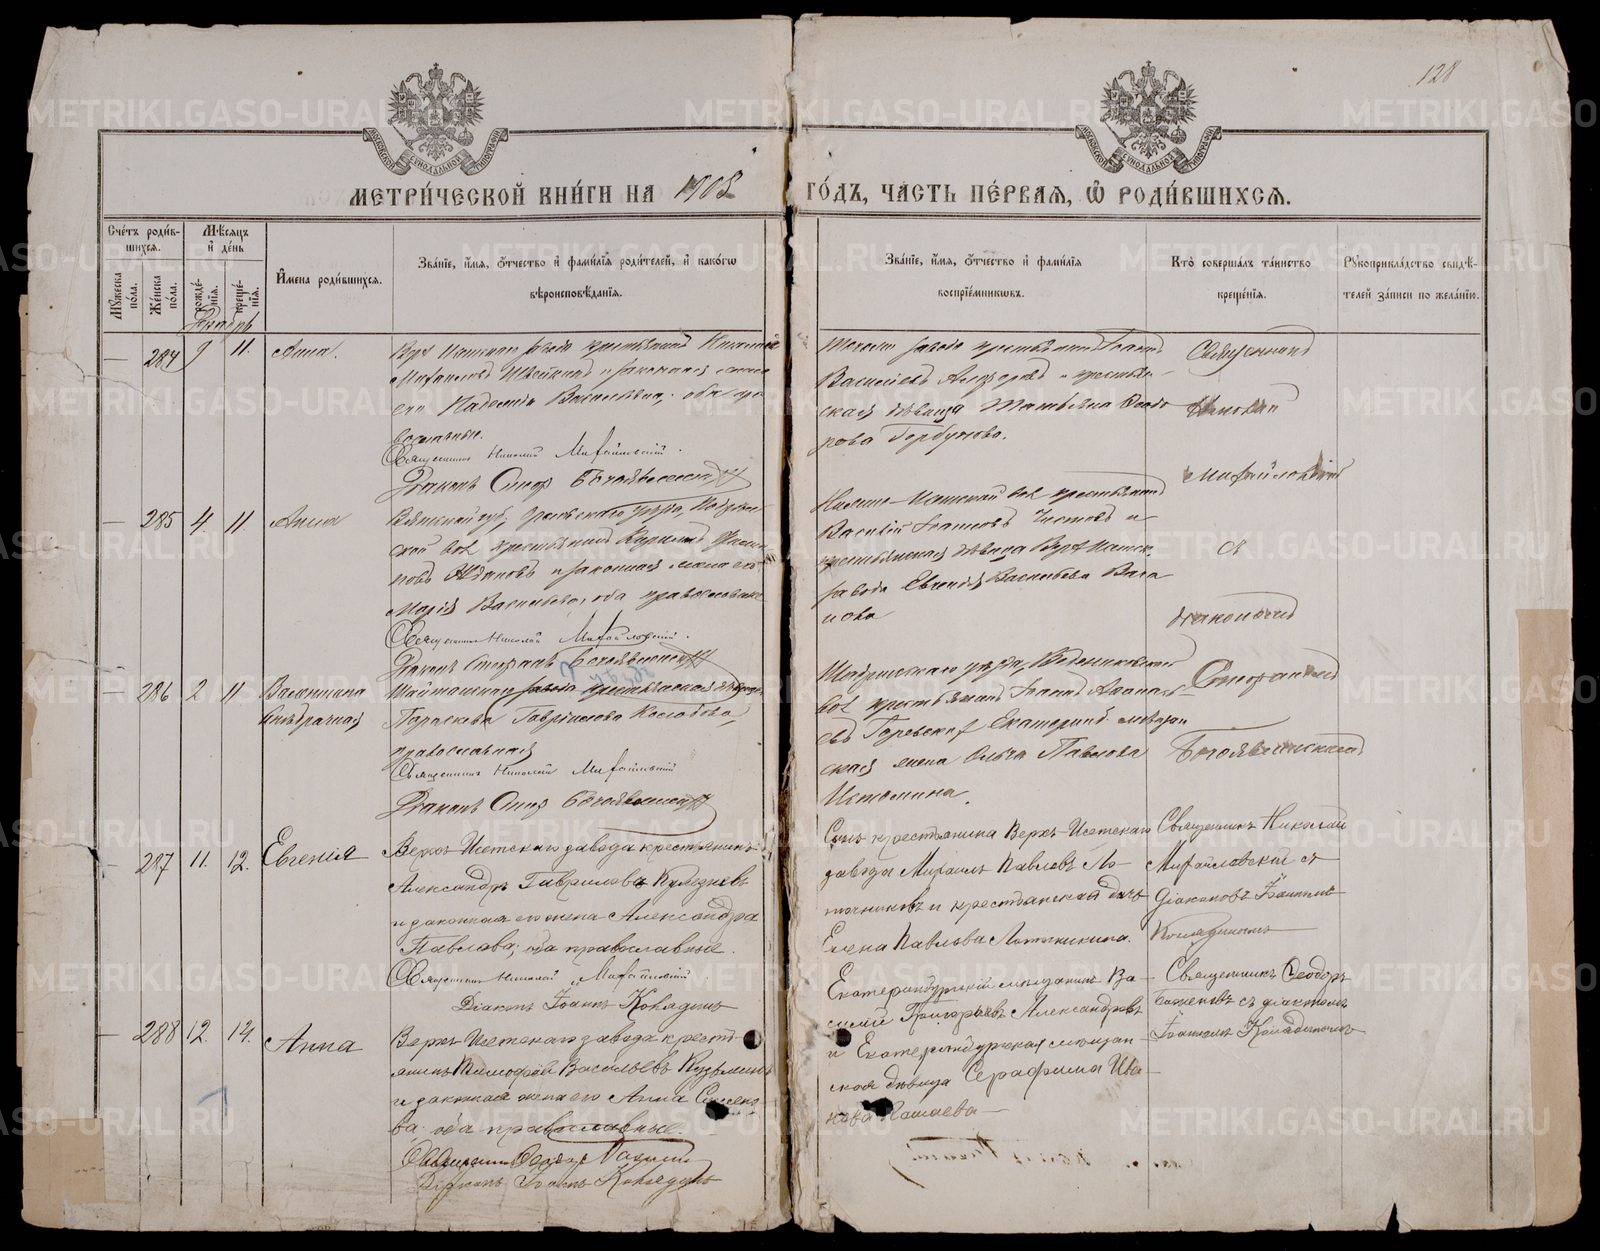 128
МОСКОВСКОЙ СѴНОДАЛЬНОЙ ТИПОГРАФІИ
МОСКОВСКОЙ СѴНОДАЛЬНОЙ ТИПОГРАФІИ
МЕТРИ́ЧЕСКОЙ КНИ́ГИ НА 1903 ГО́ДЪ, ЧА́СТЬ ПЕ́РВАЯ, Ѡ РОДИ́ВШИХСЯ.
Сче́тъ роди́в-
шихся.
Мѣ́сяцъ
и де́нь
Мꙋ́жеска по́ла.
Же́нска по́ла.
рожде́-
нїя.
креще́-
нїя.
И́мена роди́вшихся.
Зва́нїе, и́мя, ѻ҆́тчество и фами́лїя роди́телей, и како́гѡ
вѣроисповѣ́данїя.
Зва́нїе, и́мя, ѻ҆́тчество и фами́лїя
воспрїе́мникѡвъ.
Кто̀ соверша́лъ та́инство
креще́нїя.
Рꙋкоприкла́дство свидѣ́-
телей за́писи по жела́нїю.
— 284 9 11. Анна.
Верх Исетскаго завода крестьянинъ Николай
Михаиловъ и законная жена
его Надежда Васильева, оба пра-
вославные.
Священникъ Николай Михайловскій.
Діаконъ Стеф Богоявленскій
завода крестьянинъ Іоаннъ
Васильевъ и крестьян-
ская дѣвица Татьяна Ѳеодо
рова Горбунова.
Священникъ
Николай
Михайловскій
— 285 4. 11. Анна
Вятской губ, Орловскаго уѣзда,
ской вол крестьянинъ Кириллъ
повъ Ждановъ и законная жена его
Марія Васильева, оба православные
Священникъ Николай Михайловскій.
Діаконъ Стефанъ Богоявленскій
Нижне-Исетской вол крестьянинъ
Василій Іоанновъ Чистовъ и
крестьянская дѣвица Верх Исетск.
завода Евгенія Васильева Вага
нова
съ
діакономъ
— 286 2 11 Валентина
внѣбрачная
Шайтанскаго завода крестьянская дѣвица
Параскева Гавріилова
православная
Священникъ Николай Михайловскій
Діаконъ Стеф Богоявленскій
Шадринскаго уѣзда,
вол крестьянинъ Іоаннъ
евъ и Екатеринб. мѣщан
ская жена Ольга Павлова
Истомина.
Стефаномъ
Богоявленскимъ
— 287 11. 12. Евгенія
Верхъ-Исетскаго завода крестьянинъ
Александръ Гавриловъ Кузнецовъ
и законная его жена Александра
Павлова, оба православные.
Священникъ Николай Михайловскій
Діаконъ Іоаннъ Колядинъ
Сынъ крестьянина Верхъ-Исетскаго
завода Михаилъ Павловъ Ло-
точниковъ и крестьянская дочь
Елена Павлова
Священникъ Николай
Михайловскій съ
діакономъ Іоанномъ
Колядинымъ
— 288 12. 14. Анна
Верхъ Исетскаго завода кресть-
янинъ Тимофей Васильевъ Кузьминъ
и законная жена его Анна Семено-
ва, оба православные.
Діаконъ Іоаннъ Колядинъ
Екатеринбургскій мѣщанинъ Ва-
силій Григорьевъ Александровъ
и Екатеринбургская мѣщан-
ская дѣвица Серафима Ива-
нова
Священникъ Ѳеодоръ
Баженовъ съ діакономъ
Іоанномъ Колядинымъ